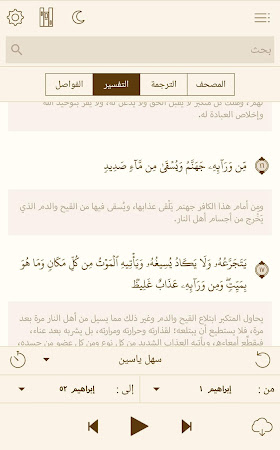 بحث
المصحف
الترجمة
التفسير
الفواصل
لهم، وهلك كل متكبر لا يقبل الحق ولا يذعن له، ولا يقر بتوحيد الله
وإخلاص العبادة له.
مِّن وَرَآئِهِۦ جَهَنَّمُ وَيُسْقَىٰ مِن مَّآءٍ صَدِيدٍ
١٦
ومِن أمام هذا الكافر جهنم يَلْقى عذابها، ويُسقى فيها من القيح والدم الذي
يَخْرج من أجسام أهل النار.
يَتَجَرَّعُهُۥ وَلَا يَكَادُ يُسِيغُهُۥ وَيَأْتِيهِ ٱلْمَوْتُ مِن كُلِّ مَكَانٍ وَمَا هُوَ
١٧
بِمَيِّتٍۖ وَمِن وَرَآئِهِۦ عَذَابٌ غَلِيظٌ
يحاول المتكبر ابتلاع القيح والدم وغير ذلك مما يسيل من أهل النار مرة بعد
مرة، فلا يستطيع أن يبتلعه؛ لقذارته وحرارته ومرارته، بل يشربه بعد عناء،
فيقطِّع أمعاءه، ويأتيه العذاب الشديد من كل نوع ومن كل عضو من جسده،
سهل ياسين
من: إبراهيم ١
إلى: إبراهيم ٥٢